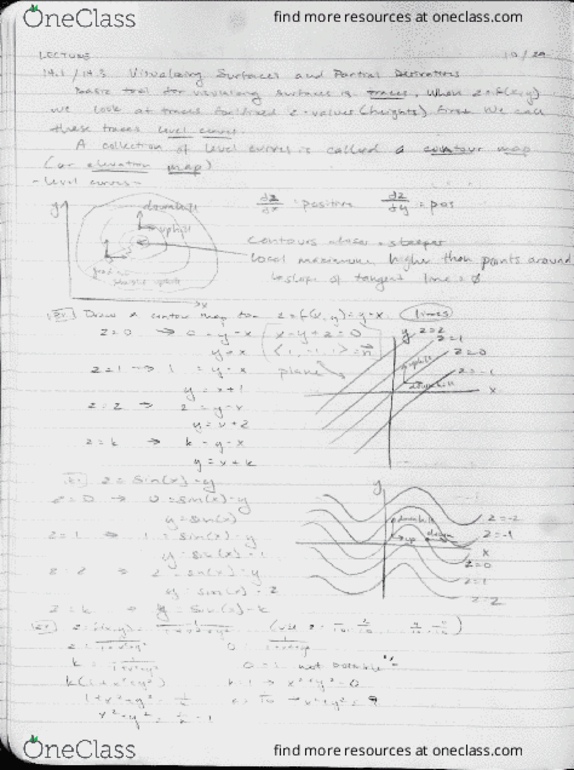 OneClass find more resources at oneclass.com
LECTURE 10/24
14.1 / 14.3 Visualizing Surfaces and Partial Derivatives
Basic tool for visualizing surfaces is traces. When z=f(x,y)
we look at traces for fixed z-values (heights) first. We call
these traces level curves.
A collection of level curves is called a contour map
(or elevation map)
-level curves-
y downhill dz/dx = positive dz/dy = pos
uphill
contours closer = steeper
local maximum higher than points around
slope of tangent line = 0
x
Ex Draw a contour map for z=f(x,y)=y-x (lines)
z=0 → 0=y-x x-y+z=0
y=x <1,-1,1>=n
z=1 → 1=y-x plane
y=x+1
z=2 → 2=y-x
y=x+2
z=k → k=y-x
y=x+k
y z=2
z=1
z=0
z=-1
uphill
downhill
x
Ex z=sin(x)-y
z=0 → 0=sin(x)-y
y=sin(x)
z=1 → 1=sin(x)-y
y=sin(x)-1
z=2 → 2=sin(x)-y
y=sin(x)-2
z=k → y=sin(x)-k
y
downhill
up down
z=-2
z=-1
x
z=0
z=1
z=2
k(1+x²+y²)
0=1 not possible
k=1 → x²+y²=0
x²+y²=9
OneClass find more resources at oneclass.com